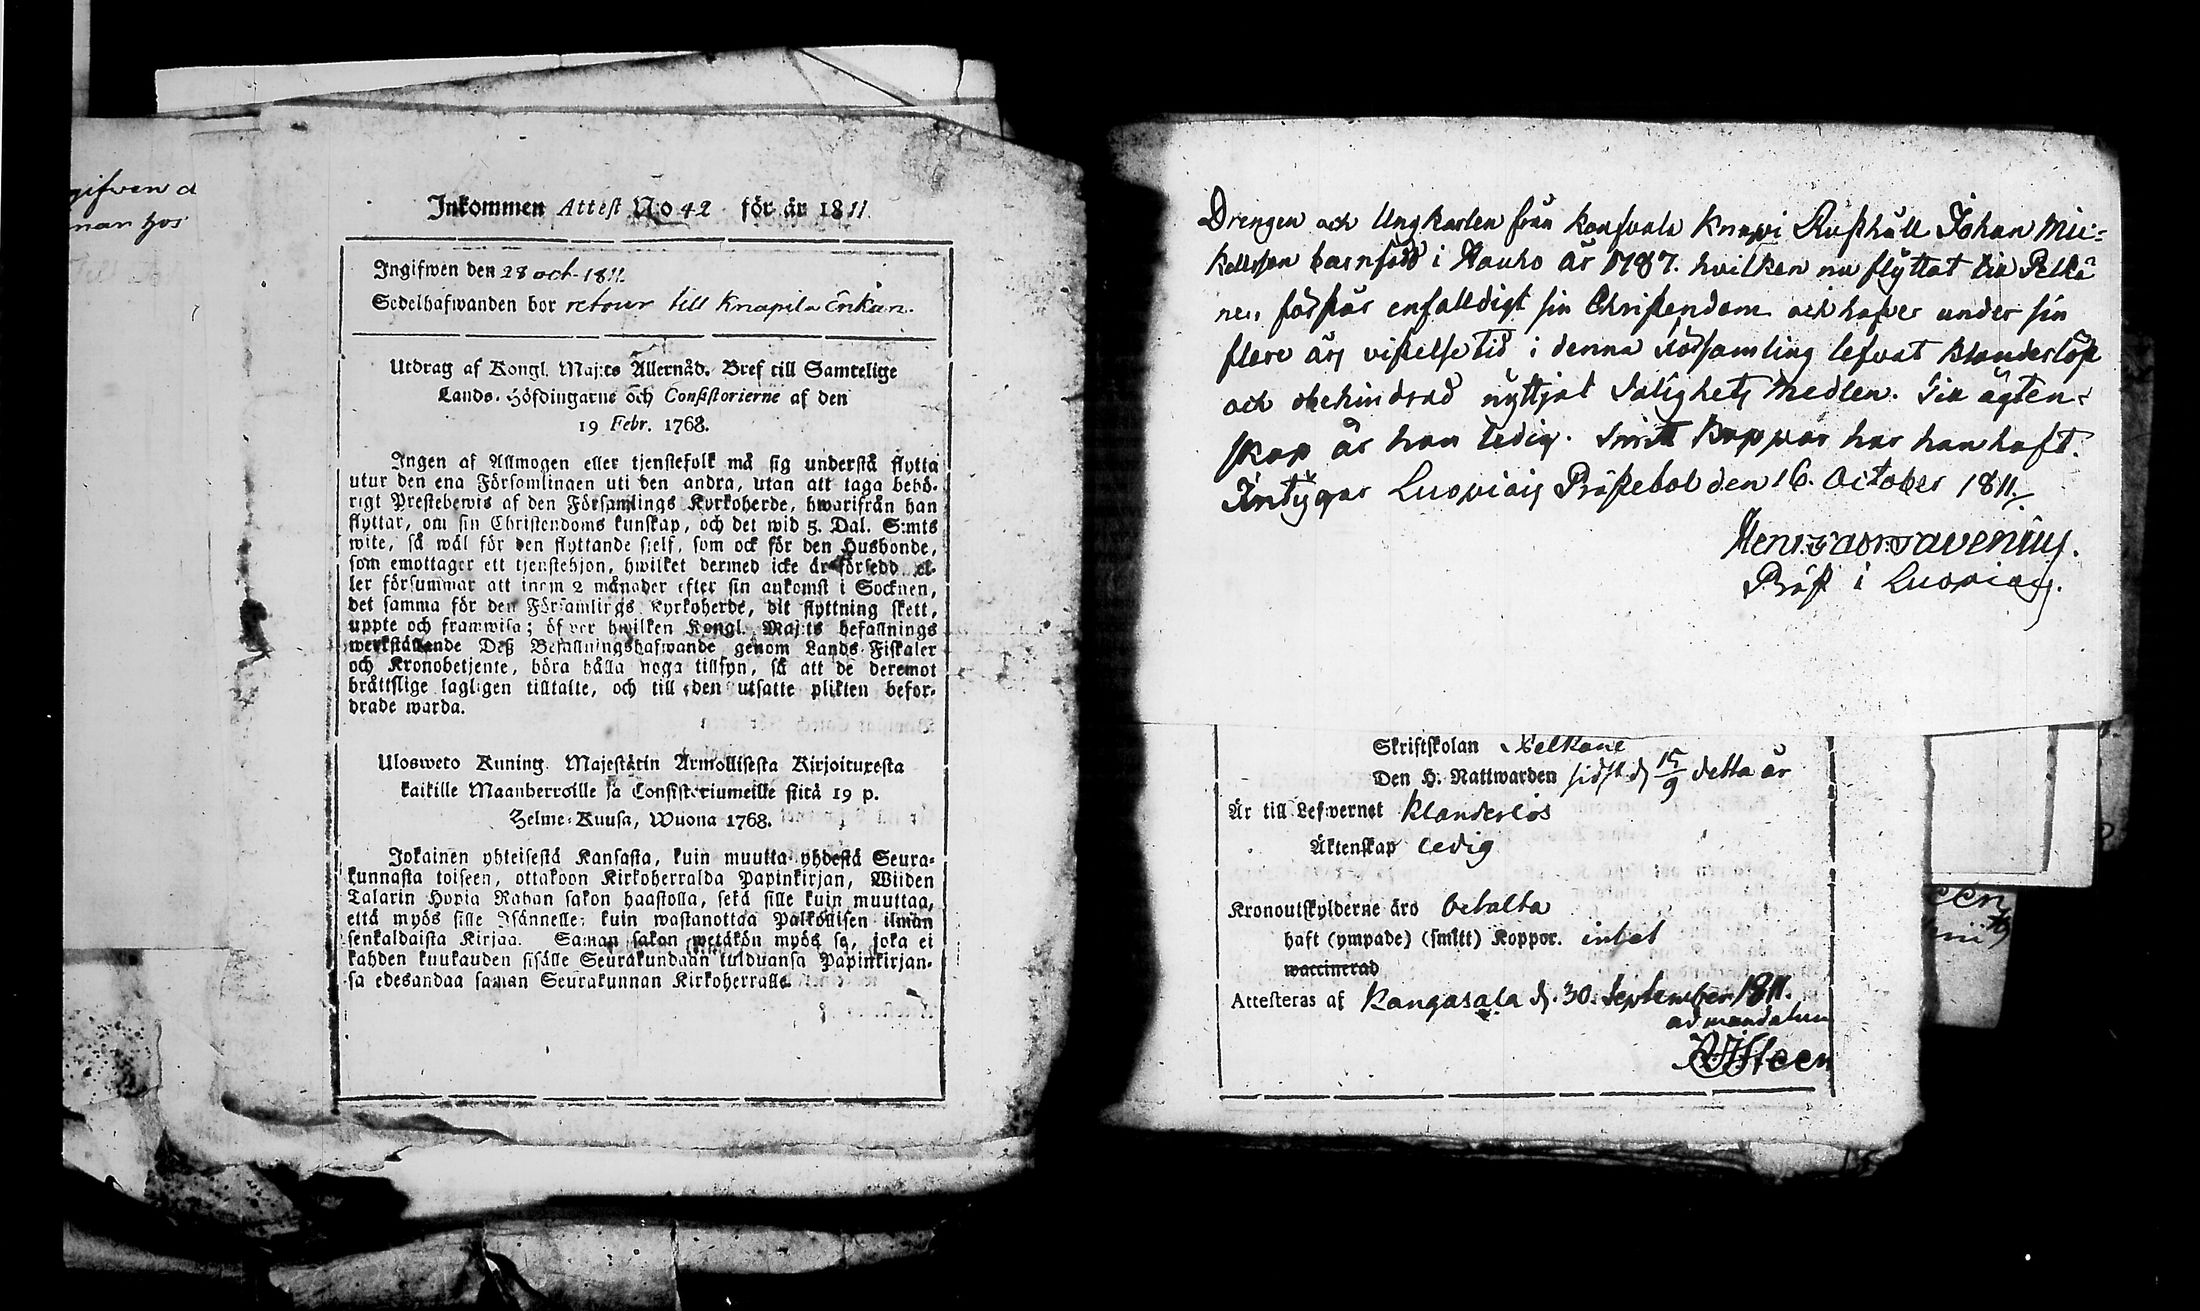 gifwen d
man hos
Inkommen Attest No 42 för år 1811
Ingifwen den 28 oct. 1811.
Sedelhafwanden bor retour till Knapila Enkan.
Utdrag af Kongl. Maj:ts Allernåd. Bref till Samtelige
Lands-Höfdingarne och Consistorierne af den
19 Febr. 1768.
Ingen af Allmogen eller tjenstefolk må sig understå flytta
utur den ena Församlingen uti den andra, utan att taga behö-
rigt Prestebewis af den Församlings Kyrkoherde, hwarifrån han
flyttar, om sin Christendoms kunskap, och det wid 5. Dal. S:mts
wite, så wäl för den flyttande sjelf, som ock för den Husbonde,
som emottager ett tjenstehjon, hwilket dermed icke är försedd el-
ler försummar att inom 2 månader efter sin ankomst i Socknen,
det samma för den Församlings Kyrkoherde, dit flyttning skett,
uppte och framwisa; öfwer hwilken Kongl. Maj:ts befallnings
werkställande Deß Befallningshafwande genom Lands-Fiskaler
och Kronobetjente, böra hålla noga tillsyn, så att de deremot
bråttslige lagligen tilltalte, och till den utsatte plikten befor-
drade warda.
Ulosweto Kuning. Majestätin Armollisesta Kirjoituxesta
kaikille Maanherroille ja Consistoriumeille siitä 19 p.
Helme-Kuusa, Wuona 1768.
Jokainen yhteisestä Kansasta, kuin muutta yhdestä Seura-
kunnasta toiseen, ottakoon Kirkoherralda Papinkirjan, Wiiden
Talarin Hopia Rahan sakon haastolla, sekä sille kuin muuttaa,
että myös sille Isännelle, kuin wastanottaa Palkollisen ilman
senkaldaista Kirjaa. Saman sakon wetäkön myös se, joka ei
kahden kuukauden sisälle Seurakundaan tulduansa Papinkirjan-
sa edesandaa saman Seurakunnan Kirkoherralle.
Drengen och Ungkarlen från Konsvala Knapi Rusthåll Johan Mic-
kelsson barnfödd i Hauho år 1787. hvilken nu flyttat till Pelkä
ne, förstår enfalldigt sin Christendom och hafver under sin
flere års vistelse tid i denna Församling lefvat klanderlöst
och obehindrad nyttjat Salighets Medlen. Till ägten-
skap är han ledig. Smitt Koppor har han haft.
Intygar Luopiois Prästebol den 16. October 1811.
Präst i Luopiois.
Skriftskolan Pelkane
Den H. Nattwarden sidst d 15/9 detta år
Är till Lefwernet Klanderlös
Äktenskap ledig
Kronoutskylderne äro betalta
haft (ympade) (smitt) Koppor. intet
waccinerad
Attesteras af Kangasala d. 30. September 1811.
ad mandatum
Steen
een